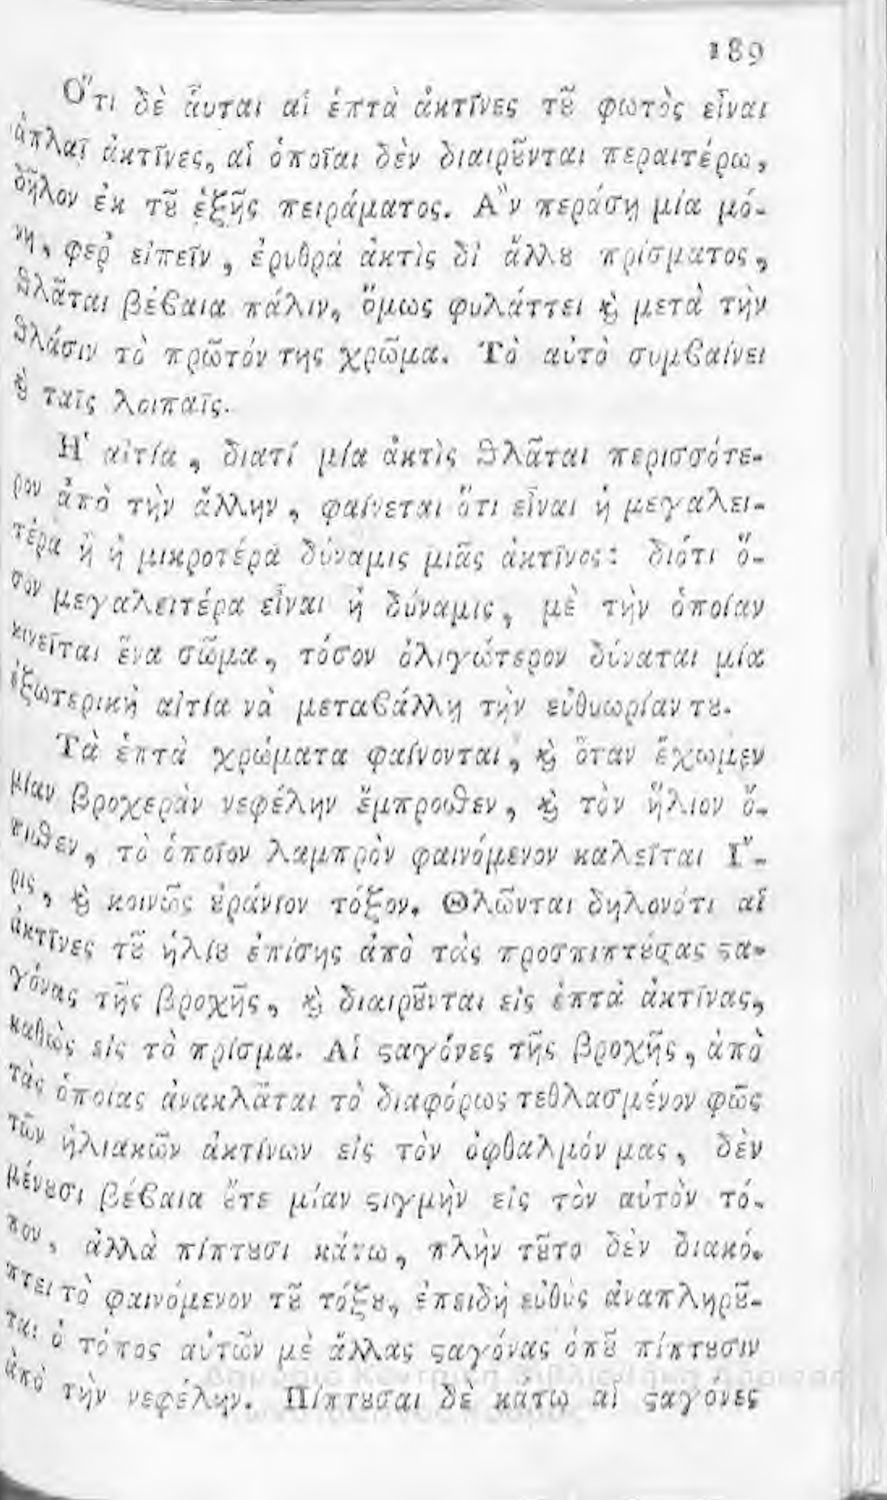 189
Ὅτι δὲ ἅυται αἱ ἑπτὰ ἀκτῖνες τȣ͂ φωτὸς εἶναι
ἁπλαῖ ἀκτῖνες, αἱ ὁποῖαι δὲν διαιρȣ͂νται περαιτέρω,
δῆλον ἐκ τȣ͂ ἑξῆς πειράματος. Ἂν περάσῃ μία μό-
νη, φερ' εἰπεῖν, ἐρυθρὰ ἀκτὶς δι' ἄλλȣ πρίσματος,
ϑλᾶται βέβαια πάλιν, ὅμως φυλάττει ϗ̀ μετὰ τὴν
ϑλάσιν τὸ πρῶτόν της χρῶμα. Τὸ αὐτὸ συμβαίνει
ϗ̀ ταῖς λοιπαῖς.
Ἡ αἰτία, διατί μία ἀκτὶς ϑλᾶται περισσότε-
ρον ἀπὸ τὴν ἄλλην, φαίνεται ὅτι εἶναι ἡ μεγαλει-
τέρα ἢ ἡ μικροτέρα δύναμις μιᾶς ἀκτῖνος: διότι ὅ-
σον μεγαλειτέρα εἶναι ἡ δύναμις, μὲ τὴν ὁποίαν
κινεῖται ἕνα σῶμα, τόσον ὀλιγώτερον δύναται μία
ἐξωτερικὴ αἰτία νὰ μεταβάλλῃ τὴν εὐθυωρίαν τȣ.
Τὰ ἑπτὰ χρώματα φαίνονται, ϗ̀ ὅταν ἔχωμεν
μίαν βροχερὰν νεφέλην ἔμπροσθεν, ϗ̀ τὸν ἥλιον ὄ-
πιϑεν, τὸ ὁποῖον λαμπρὸν φαινόμενον καλεῖται Ἴ-
ρις, ϗ̀ κοινῶς ȣ̓ράνιον τόξον. Θλῶνται δηλονότι αἱ
ἀκτῖνες τȣ͂ ἡλίȣ ἐπίσης ἀπὸ τὰς προσπιπτȣ́σας ϛα-
γόνας τῆς βροχῆς, ϗ̀ διαιρȣ͂νται εἰς ἑπτὰ ἀκτῖνας,
καθὼς εἰς τὸ πρίσμα. Αἱ ϛαγόνες τῆς βροχῆς, ἀπὸ
τὰς ὁποίας ἀνακλᾶται τὸ διαφόρως τεθλασμένον φῶς
τῶν ἡλιακῶν ἀκτίνων εἰς τὸν ὀφθαλμόν μας, δὲν
μένȣσι βέβαια ȣ̓́τε μίαν ϛιγμὴν εἰς τὸν αὐτὸν τό-
πον, ἀλλὰ πίπτȣσι κάτω, πλὴν τȣ͂το δὲν διακό-
πτει τὸ φαινόμενον τȣ͂ τόξȣ, ἐπειδὴ εὐθὺς ἀναπληρȣ͂-
ται ὁ τόπος αὐτῶν μὲ ἄλλας ϛαγόνας ὁπȣ͂ πίπτȣσιν
ἀπὸ τὴν νεφέλην. Πίπτȣσαι δὲ κάτω αἱ ϛαγόνες